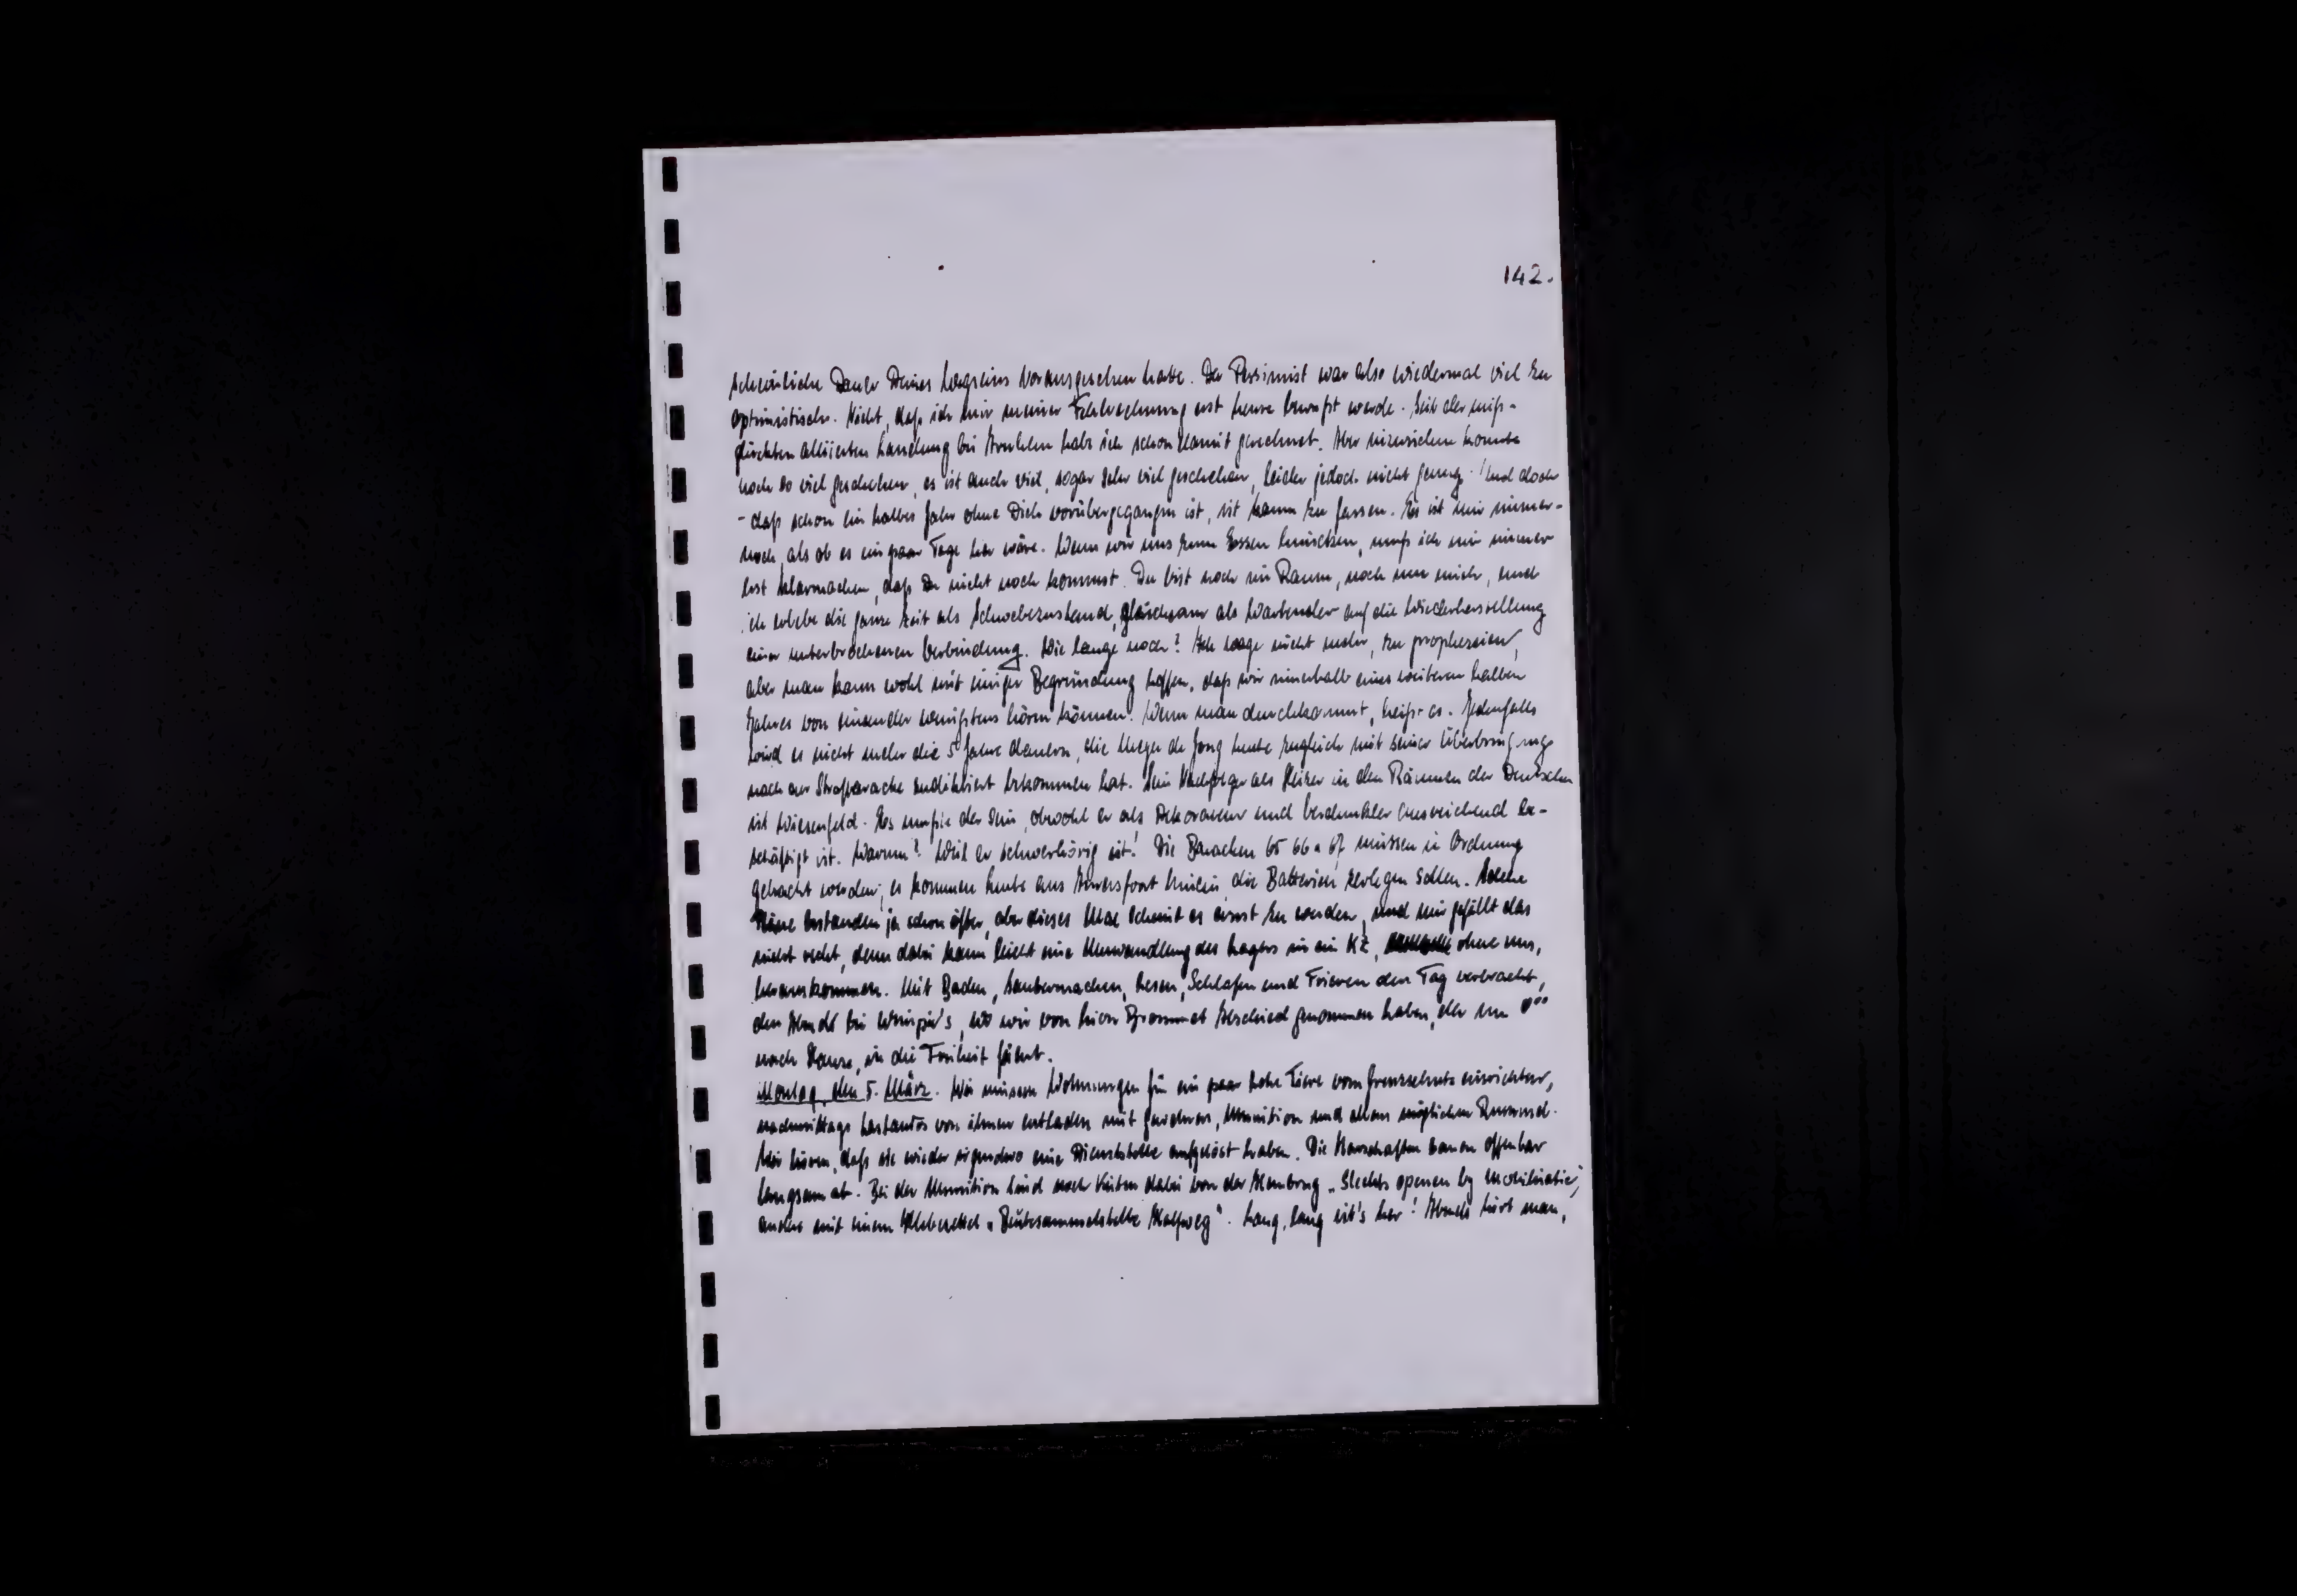 142.
scheinliche Dauer Deines Wegseins vorausgesehen hatte. Der Pessimist war also wiedermal viel zu
optimistisch. Nicht, daß ich mir meiner Fehlrechnung erst heute bewußt werde. Seit der miß-
glückten alliierten Landung bei Arnhem habe ich schon damit gerechnet. Aber inzwischen konnte
noch so viel geschehen, es ist auch viel, sogar sehr viel geschehen, leider jedoch nicht genug. Und doch
- daß schon ein halbes Jahr ohne Dich vorübergegangen ist, ist kaum zu fassen. Es ist mir immer-
noch, als ob es ein paar Tage her wäre. Wenn wir uns zum Essen hinsetzen, muß ich mir immer
erst klarmachen, daß Du nicht noch kommst. Du bist noch im Raum, noch um mich, und
ich erlebe die ganze Zeit als Schwebezustand, gleichsam als Wartender auf die Wiederherstellung
einer unterbrochenen Verbindung. Wie lange noch? Ich wage nicht mehr, zu prophezeien,
aber man kann wohl mit einiger Begründung hoffen, daß wir innerhalb eines weiteren halben
Jahres von einander wenigstens hören können. Wenn man durchkommt, heißt es. Jedenfalls
wird es nicht mehr die 5 Jahre dauern, die Meyer de Jong heute zugleich mit seiner Überbringung
nach der Strafbaracke zudiktiert bekommen hat. Sein Nachfolger als Heizer in den Räumen der Deutschen
ist Wiesenfeld. Es mußte der sein, obwohl er als Dekorateur und Verdunkler ausreichend be-
schäftigt ist. Warum? Weil er schwerhörig ist! Die Baracken 65 66 u 67 müssen in Ordnung
gebracht werden; es kommen Leute aus Amersfoort hinein, die Batterien zerlegen sollen. Solche
Pläne bestanden ja schon öfter, aber dieses Mal scheint es ernst zu werden, und mir gefällt das
nicht recht, denn dabei kann leicht eine Umwandlung des Lagers in ein KZ, ohne uns,
herauskommen. Mit Baden, Saubermachen, Lesen, Schlafen und Frieren den Tag verbracht,
den Abend bei, wo wir von Abschied genommen haben, der um
nach Hause, in die Freiheit fährt.
Montag, den 5. März. Wir müssen Wohnungen für ein paar hohe Tiere vom Grenzschutz einrichten,
nachmittags Lastautos von ihnen entladen mit Gewehren, Munition und allem möglichen
Wir hören, daß sie wieder irgendwo eine Dienststelle aufgelöst haben. Die Herrschaften bauen offenbar
langsam ab. Bei der Munition sind noch Kisten dabei von der Hembrug „Slechts openen by mobilisatie",
andre mit einem Klebezettel „Beutesammelstelle Halfweg". Lang, lang ist's her! Abends hört man,